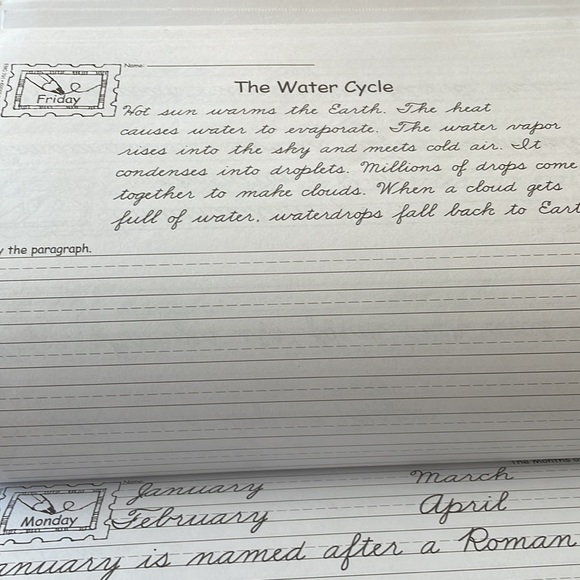 Name:
Friday
The Water Cycle
Hot sun warms the Earth. The heat
causes water to evaporate. The water vapor
rises into the sky and meets cold air. It
condenses into droplets. Millions of drops come
together to make clouds. When a cloud gets
full of water, waterdrops fall back to Eart
y the paragraph.
The Months o
Name:
January March
Monday
February April
anuary is named after a Roman